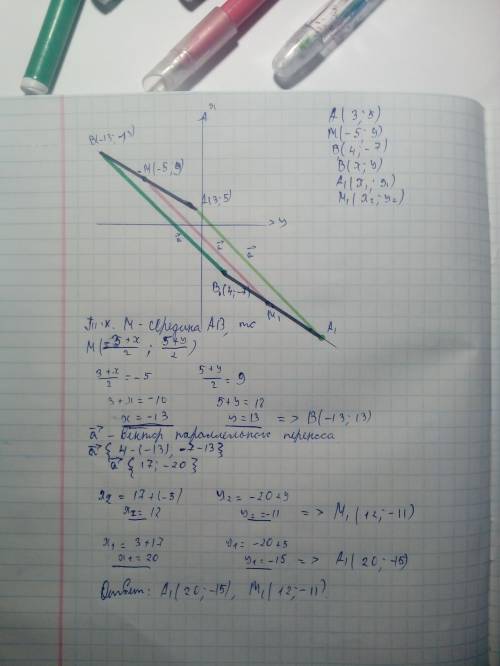 A(3; 5)
M(-5; 9)
B(4; -7)
B(x; y)
A₁(x₁; y₁)
M₁(x₂; y₂)
M(-5; 9)
A(3; 5)
B₁(4; -7)
M₁
A₁
a⃗
a⃗
a⃗
Т.к. M - середина AB, то
M(3+x/2; 5+y/2)
3+x/2 = -5 5+y/2 = 9
3+x = -10 5+y = 18
x = -13 y = 13 => B(-13; 13)
a⃗ - вектор параллельного переноса
a⃗ {4-(-13); -7-13}
a⃗ {17; -20}
x₂ = 17+(-5) y₂ = -20+9
x₂ = 12 y₂ = -11 => M₁(12; -11)
x₁ = 3+17 y₁ = -20+5
x₁ = 20 y₁ = -15 => A₁(20; -15)
Ответ: A₁(20; -15), M₁(12; -11).